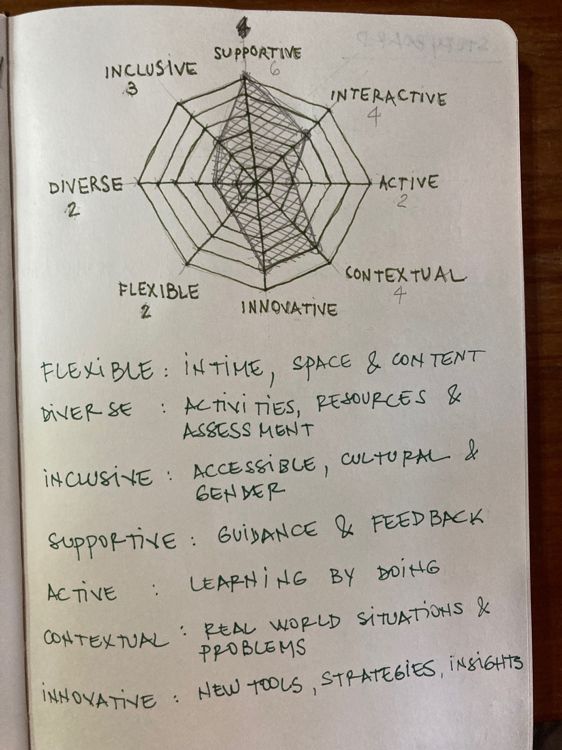 SUPPORTIVE
6
INCLUSIVE
3
INTERACTIVE
4
DIVERSE
2
ACTIVE
2
FLEXIBLE
2
CONTEXTUAL
4
INNOVATIVE
FLEXIBLE : IN TIME, SPACE & CONTENT
DIVERSE : ACTIVITIES, RESOURCES &
ASSESSMENT
INCLUSIVE : ACCESSIBLE, CULTURAL &
GENDER
SUPPORTIVE : GUIDANCE & FEEDBACK
ACTIVE : LEARNING BY DOING
CONTEXTUAL : REAL WORLD SITUATIONS &
PROBLEMS
INNOVATIVE : NEW TOOLS, STRATEGIES, INSIGHTS